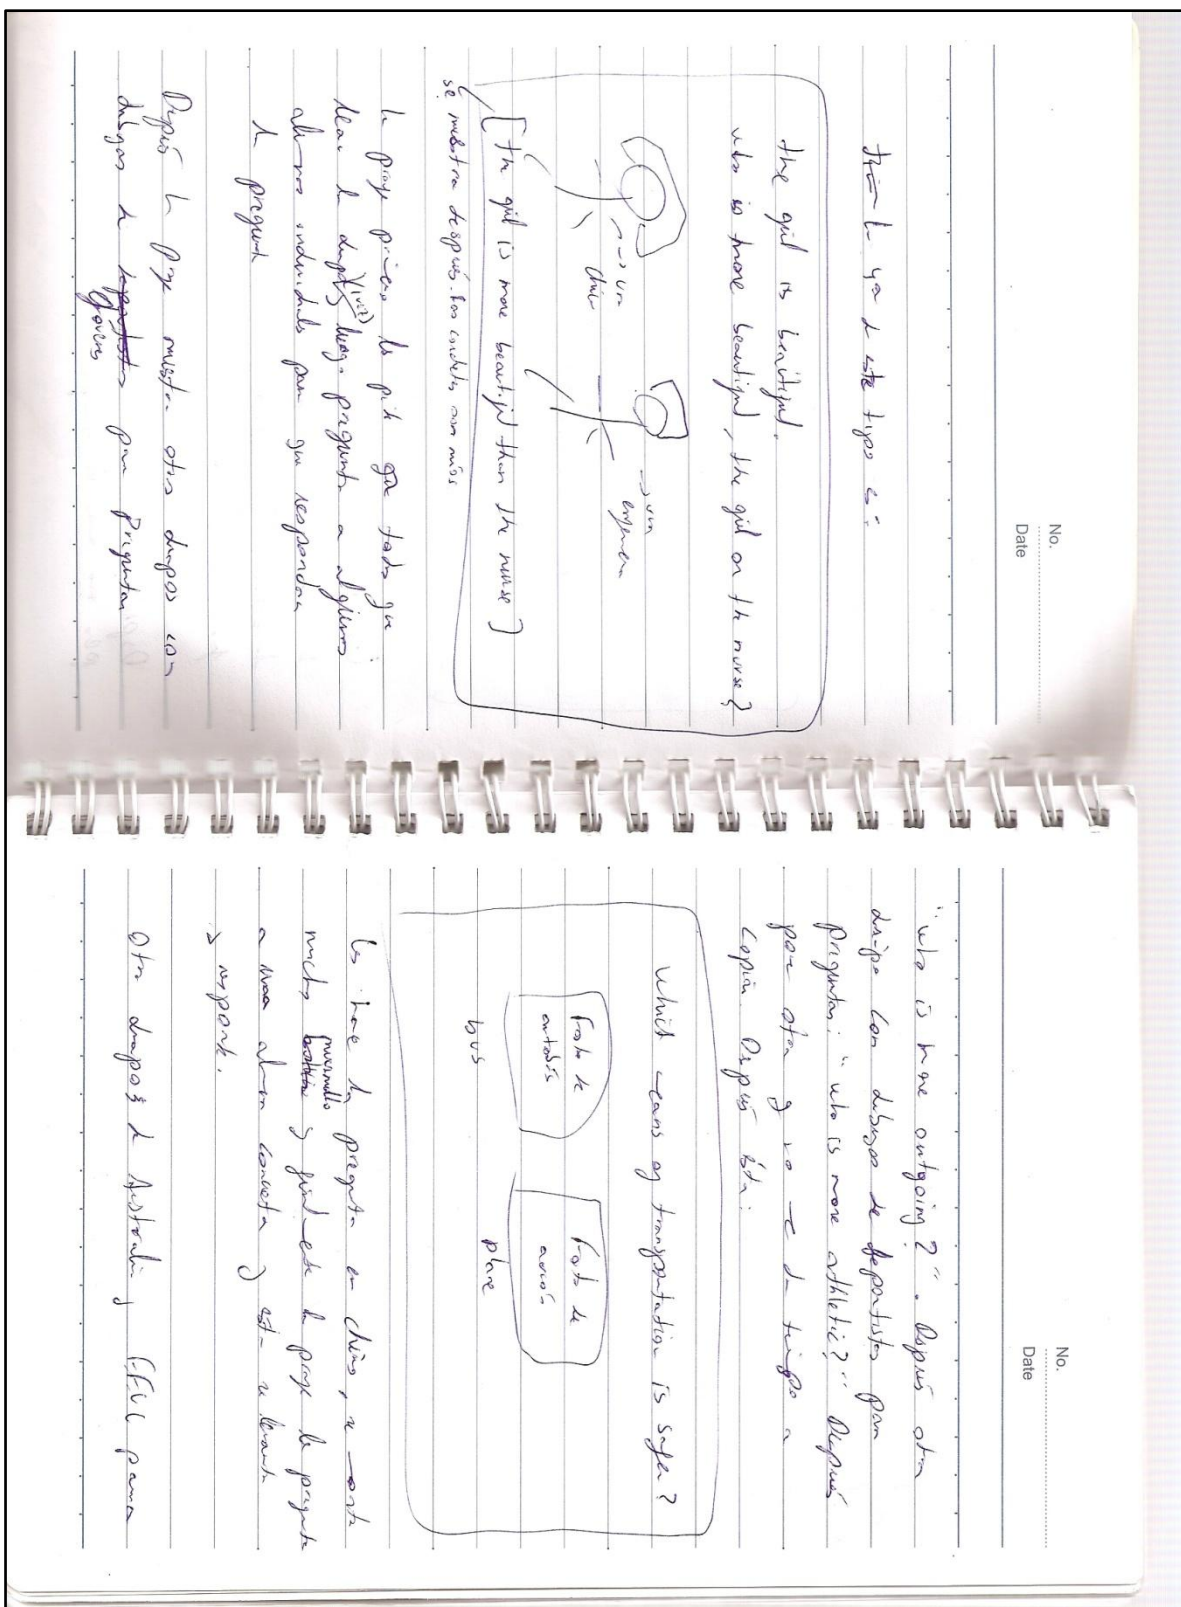 No.
Date
de este tipo es:
The girl is beautiful.
Who is more beautiful, the girl or the nurse?
→ una
chica
→ una
enfermera
[The girl is more beautiful than the nurse]
se muestra después. Los carteles son más
La profe primero les pide que todos que
lean la diapos (1 vez) luego pregunta a algunos
alumnos individuales para que respondan
la pregunta
Después la profe muestra otras diapos con
dibujos de jóvenes para preguntar
No.
Date
"Who is more outgoing?". Después otra
diapo con dibujos de deportistas para
preguntar: "Who is more athletic?" Después
pone otra y no me da tiempo a
copiar. Después ésta:
Which means of transportation is safer?
Foto de
autobús
Foto de
avión
bus
plane
les hace la pregunta en chino, se monta
mucho murmullo y finalmente la profe le pregunta
a una alumna concreta y esta se levanta
y responde.
Otra diapos de Australia y para